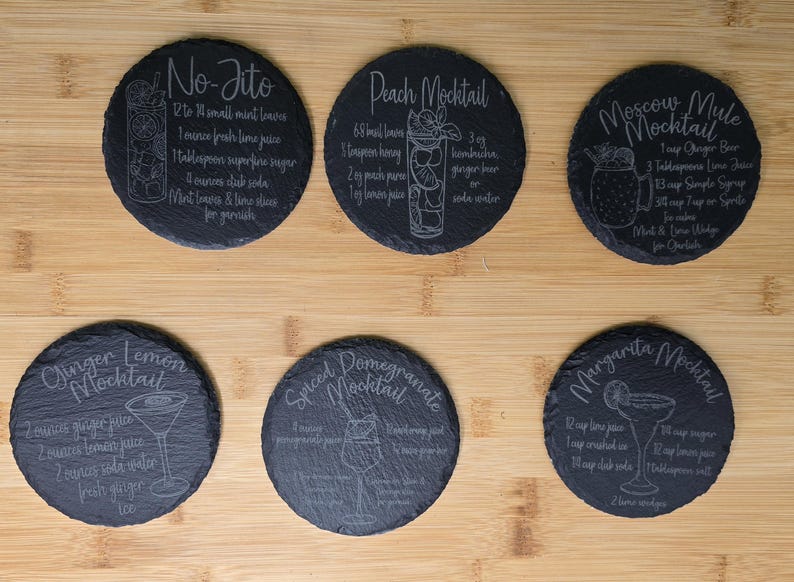 No-Jito
12 to 14 small mint leaves
1 ounce fresh lime juice
1 tablespoon superfine sugar
4 ounces club soda
Mint leaves & lime slices
for garnish
Peach Mocktail
6-8 basil leaves
½ teaspoon honey
2 oz peach puree
1 oz lemon juice
3 oz
kombucha,
ginger beer
or
soda water
Moscow Mule
Mocktail
1 cup Ginger Beer
3 Tablespoons Lime Juice
1/3 cup Simple Syrup
3/4 cup 7-up or Sprite
Ice cubes
Mint & Lime Wedge
for Garlish
Ginger Lemon
Mocktail
2 ounces ginger juice
2 ounces lemon juice
2 ounces soda water
fresh ginger
ice
Spiced Pomegranate
Mocktail
4 ounces
pomegranate juice
ounces ginger beer
for garnish
Margarita Mocktail
1/2 cup lime juice
1 cup crushed ice
1/4 cup club soda
1/4 cup sugar
1/2 cup lemon juice
1 tablespoon salt
2 lime wedges